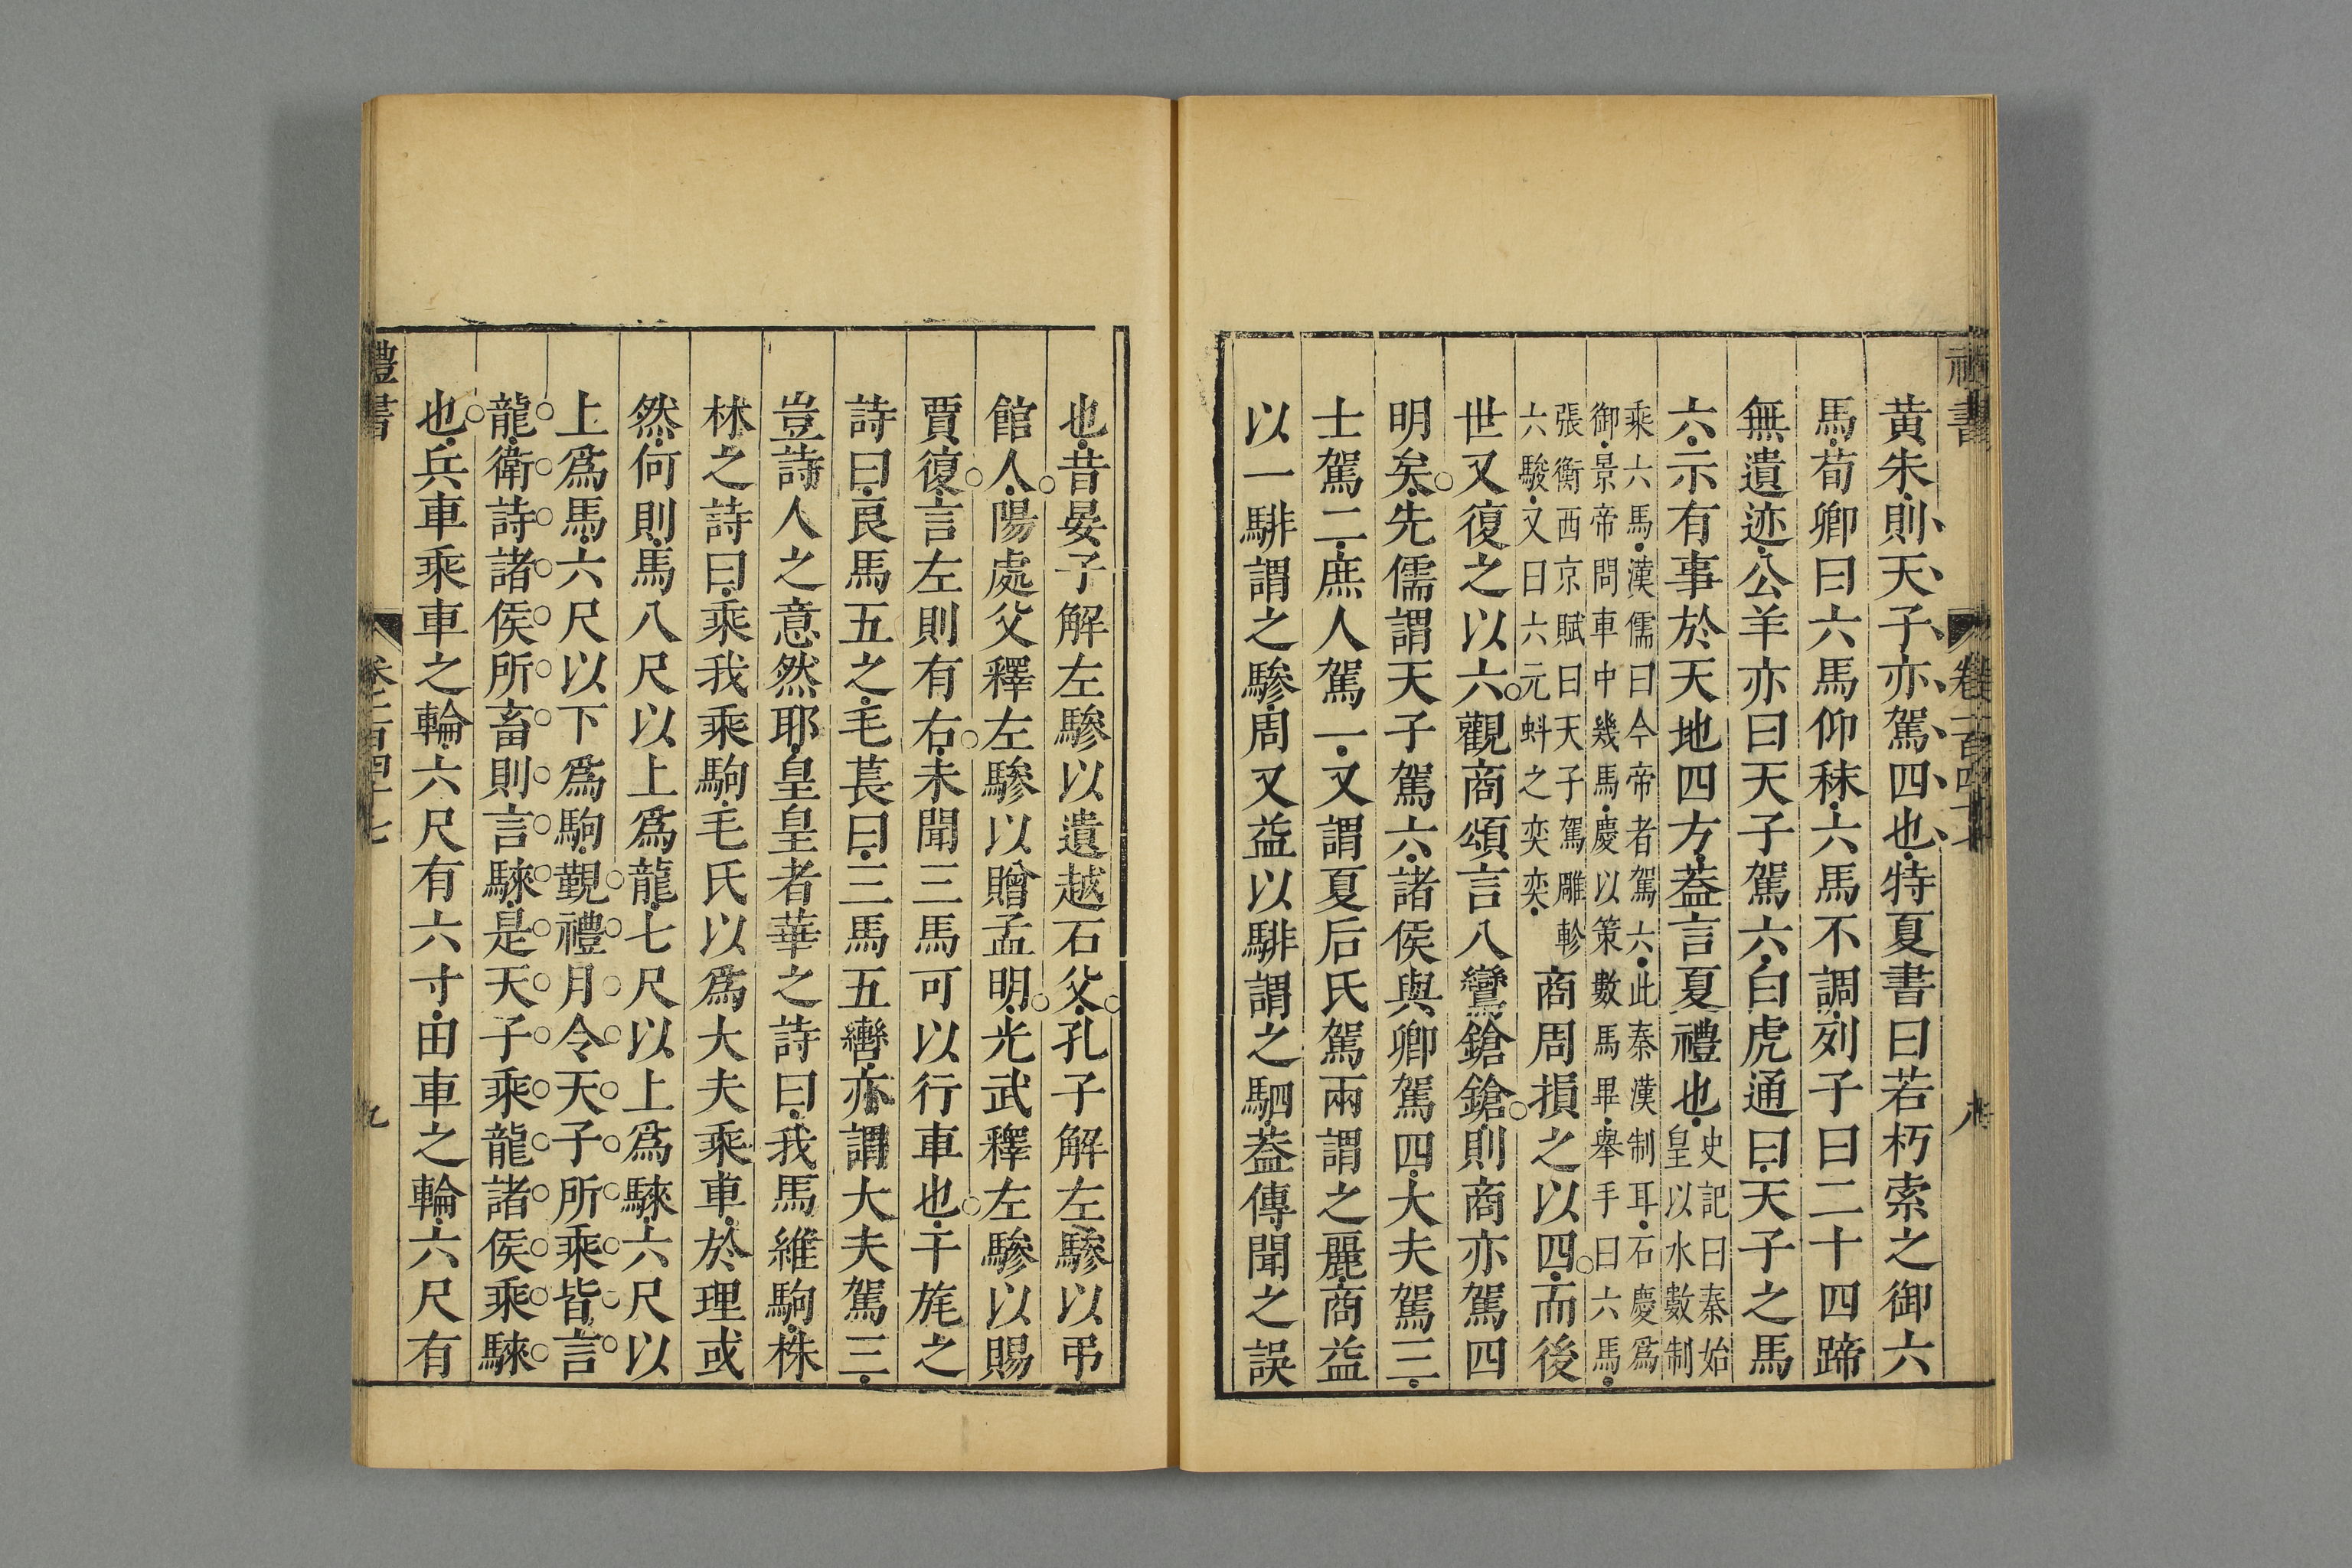 黄朱則天子亦駕四也特夏書曰若朽索之御六
馬荀卿曰六馬仰秣六馬不調列子曰二十四蹄
無遺迹公羊亦曰天子駕六白虎通曰天子之馬
六示有事於天地四方葢言夏禮也史記曰秦始
皇以水數制
乘六馬漢儒曰今帝者駕六此秦漢制耳石慶爲
御景帝問車中幾馬慶以策數馬畢舉手曰六馬
張衡西京賦曰天子駕雕軫
六駿又曰六元虯之奕奕
商周損之以四而後
世又復之以六觀商頌言八鸞鎗鎗則商亦駕四
明矣先儒謂天子駕六諸侯與卿駕四大夫駕三
士駕二庶人駕一又謂夏后氏駕兩謂之麗商益
以一騑謂之驂周又益以騑謂之駟葢傳聞之誤
也昔晏子解左驂以遺越石父孔子解左驂以弔
館人陽處父釋左驂以贈孟明光武釋左驂以賜
賈復言左則有右未聞三馬可以行車也干旄之
詩曰良馬五之毛萇曰三馬五轡亦謂大夫駕三
豈詩人之意然耶皇皇者華之詩曰我馬維駒株
林之詩曰乘我乘駒毛氏以爲大夫乘車於理或
然何則馬八尺以上爲龍七尺以上爲騋六尺以
上爲馬六尺以下爲駒覲禮月令天子所乘皆言
龍衛詩諸侯所畜則言騋是天子乘龍諸侯乘騋
也兵車乘車之輪六尺有六寸田車之輪六尺有
禮書
卷一百四十七
九